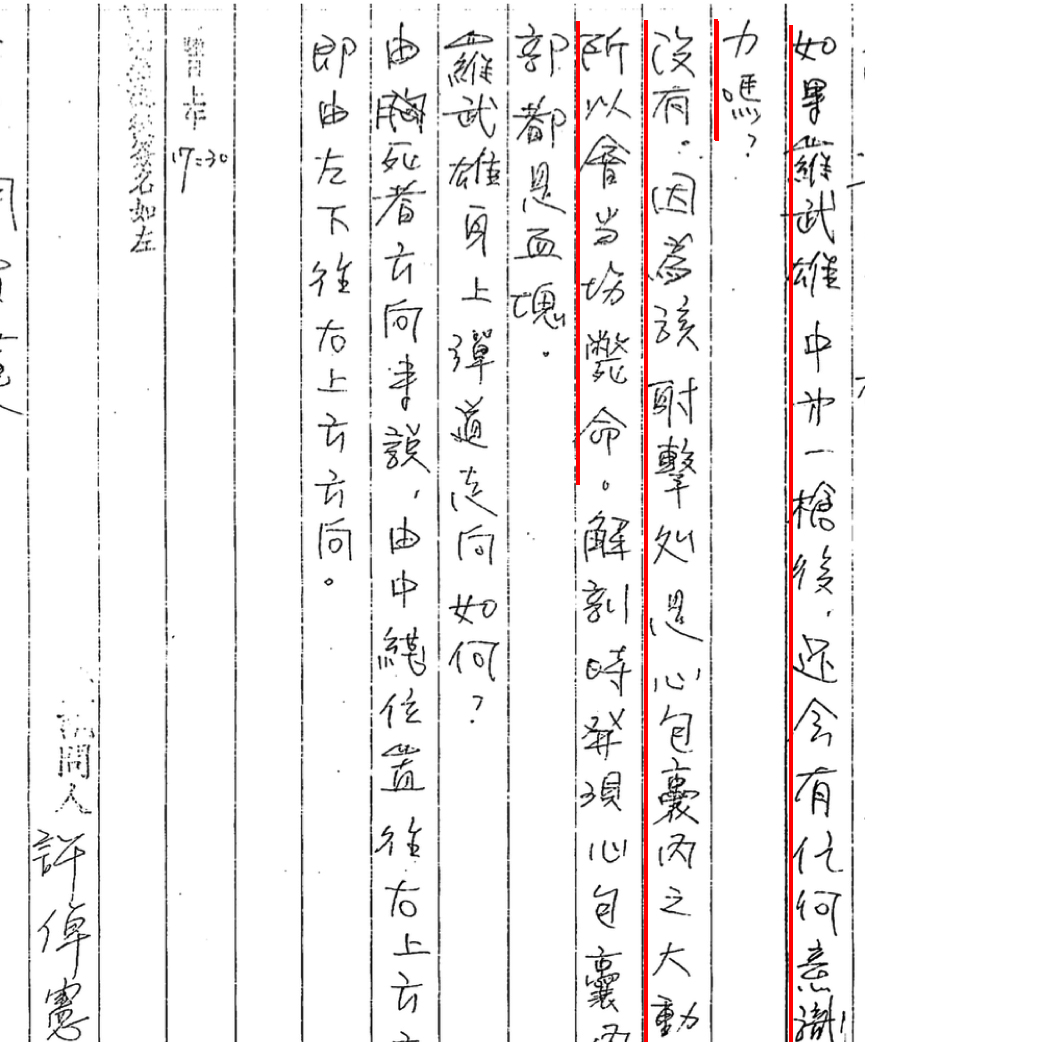 如果羅武雄中第一槍後，還會有任何意識
力嗎？
沒有．因為該射擊処是心包囊內之大動
所以會当場斃命。解剖時發現心包囊內
部都是血塊．
羅武雄身上彈道走向如何？
由胸死者方向来說，由中線位置往右上方
即由左下往右上方方向。
17:30
簽名如左
訊問人 許倬憲